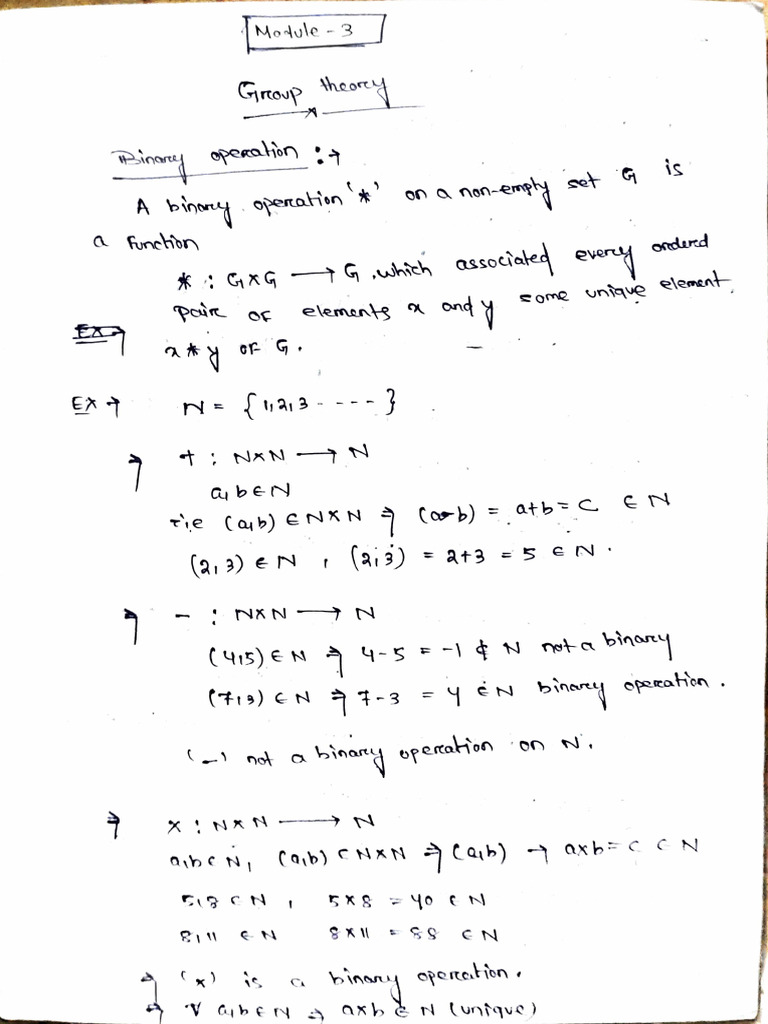 Module - 3
Group theory
Binary operation :→
A binary operation '*' on a non-empty set G is
a function
* : G×G ⟶ G, which associated every ordered
pair of elements x and y some unique element.
Ex⇒
x * y of G.
Ex → N = {1,2,3 - - - - }
⇒ + : N×N ⟶ N
a,b∈N
i.e (a,b) ∈ N×N ⇒ (a b) = a+b = C ∈ N
(2,3) ∈ N , (2,3) = 2+3 = 5 ∈ N.
⇒ - : N×N ⟶ N
(4,5) ∈ N ⇒ 4-5 = -1 ∉ N not a binary
(7,3) ∈ N ⇒ 7-3 = 4 ∈ N binary operation.
(-) not a binary operation on N.
⇒ × : N×N ⟶ N
a,b ∈ N, (a,b) ∈ N×N ⇒ (a,b) → a×b = C ∈ N
5,8 ∈ N , 5×8 = 40 ∈ N
8,11 ∈ N 8×11 = 88 ∈ N
⇒ (×) is a binary operation.
⇒ ∀ a,b ∈ N ⇒ a×b ∈ N (unique)